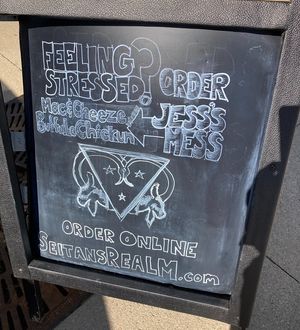 FEELING
STRESSED? ORDER
Mac & Cheeze JESS'S
Buffalo Chickun MESS
ORDER ONLINE
SEITANSREALM.com